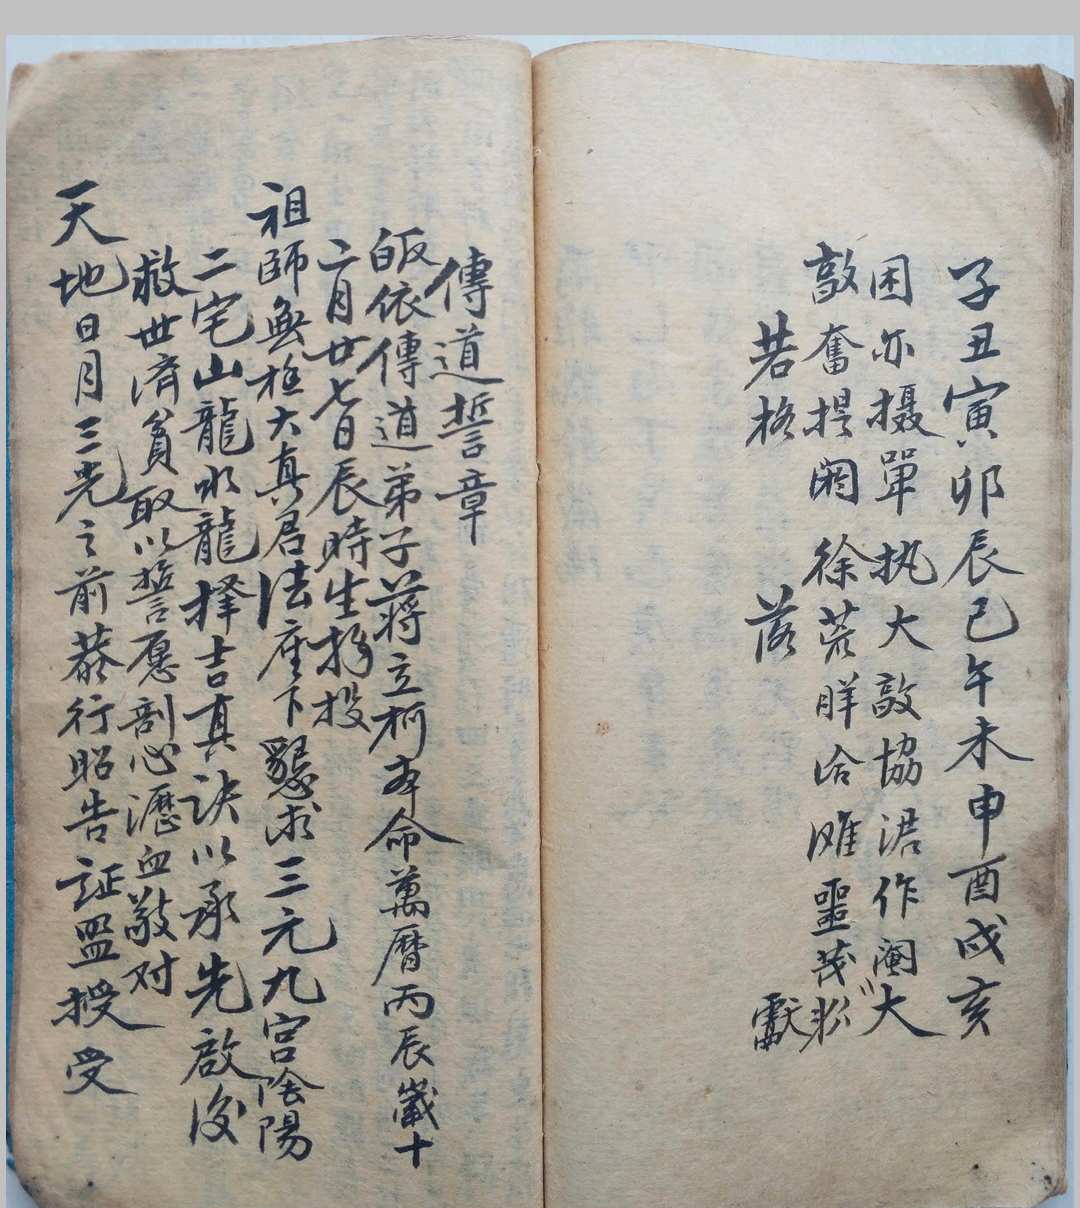 子丑寅卯辰巳午未申酉戌亥
困亦摄單执大敦協涒作阉大
敦奮提阏徐荒牂洽滩噩茂淵
若格　落　獻
傳道誓章
皈依傳道弟子蔣立柯本命萬曆丙辰歲十
二月廿七日辰時生投
祖師無極大真君法座下懇求三元九宫陰陽
二宅山龍水龍擇吉真訣以承先啟後
救世濟貧取以誓愿剖心瀝血敬对
天地日月三光之前恭行昭告証盟授受